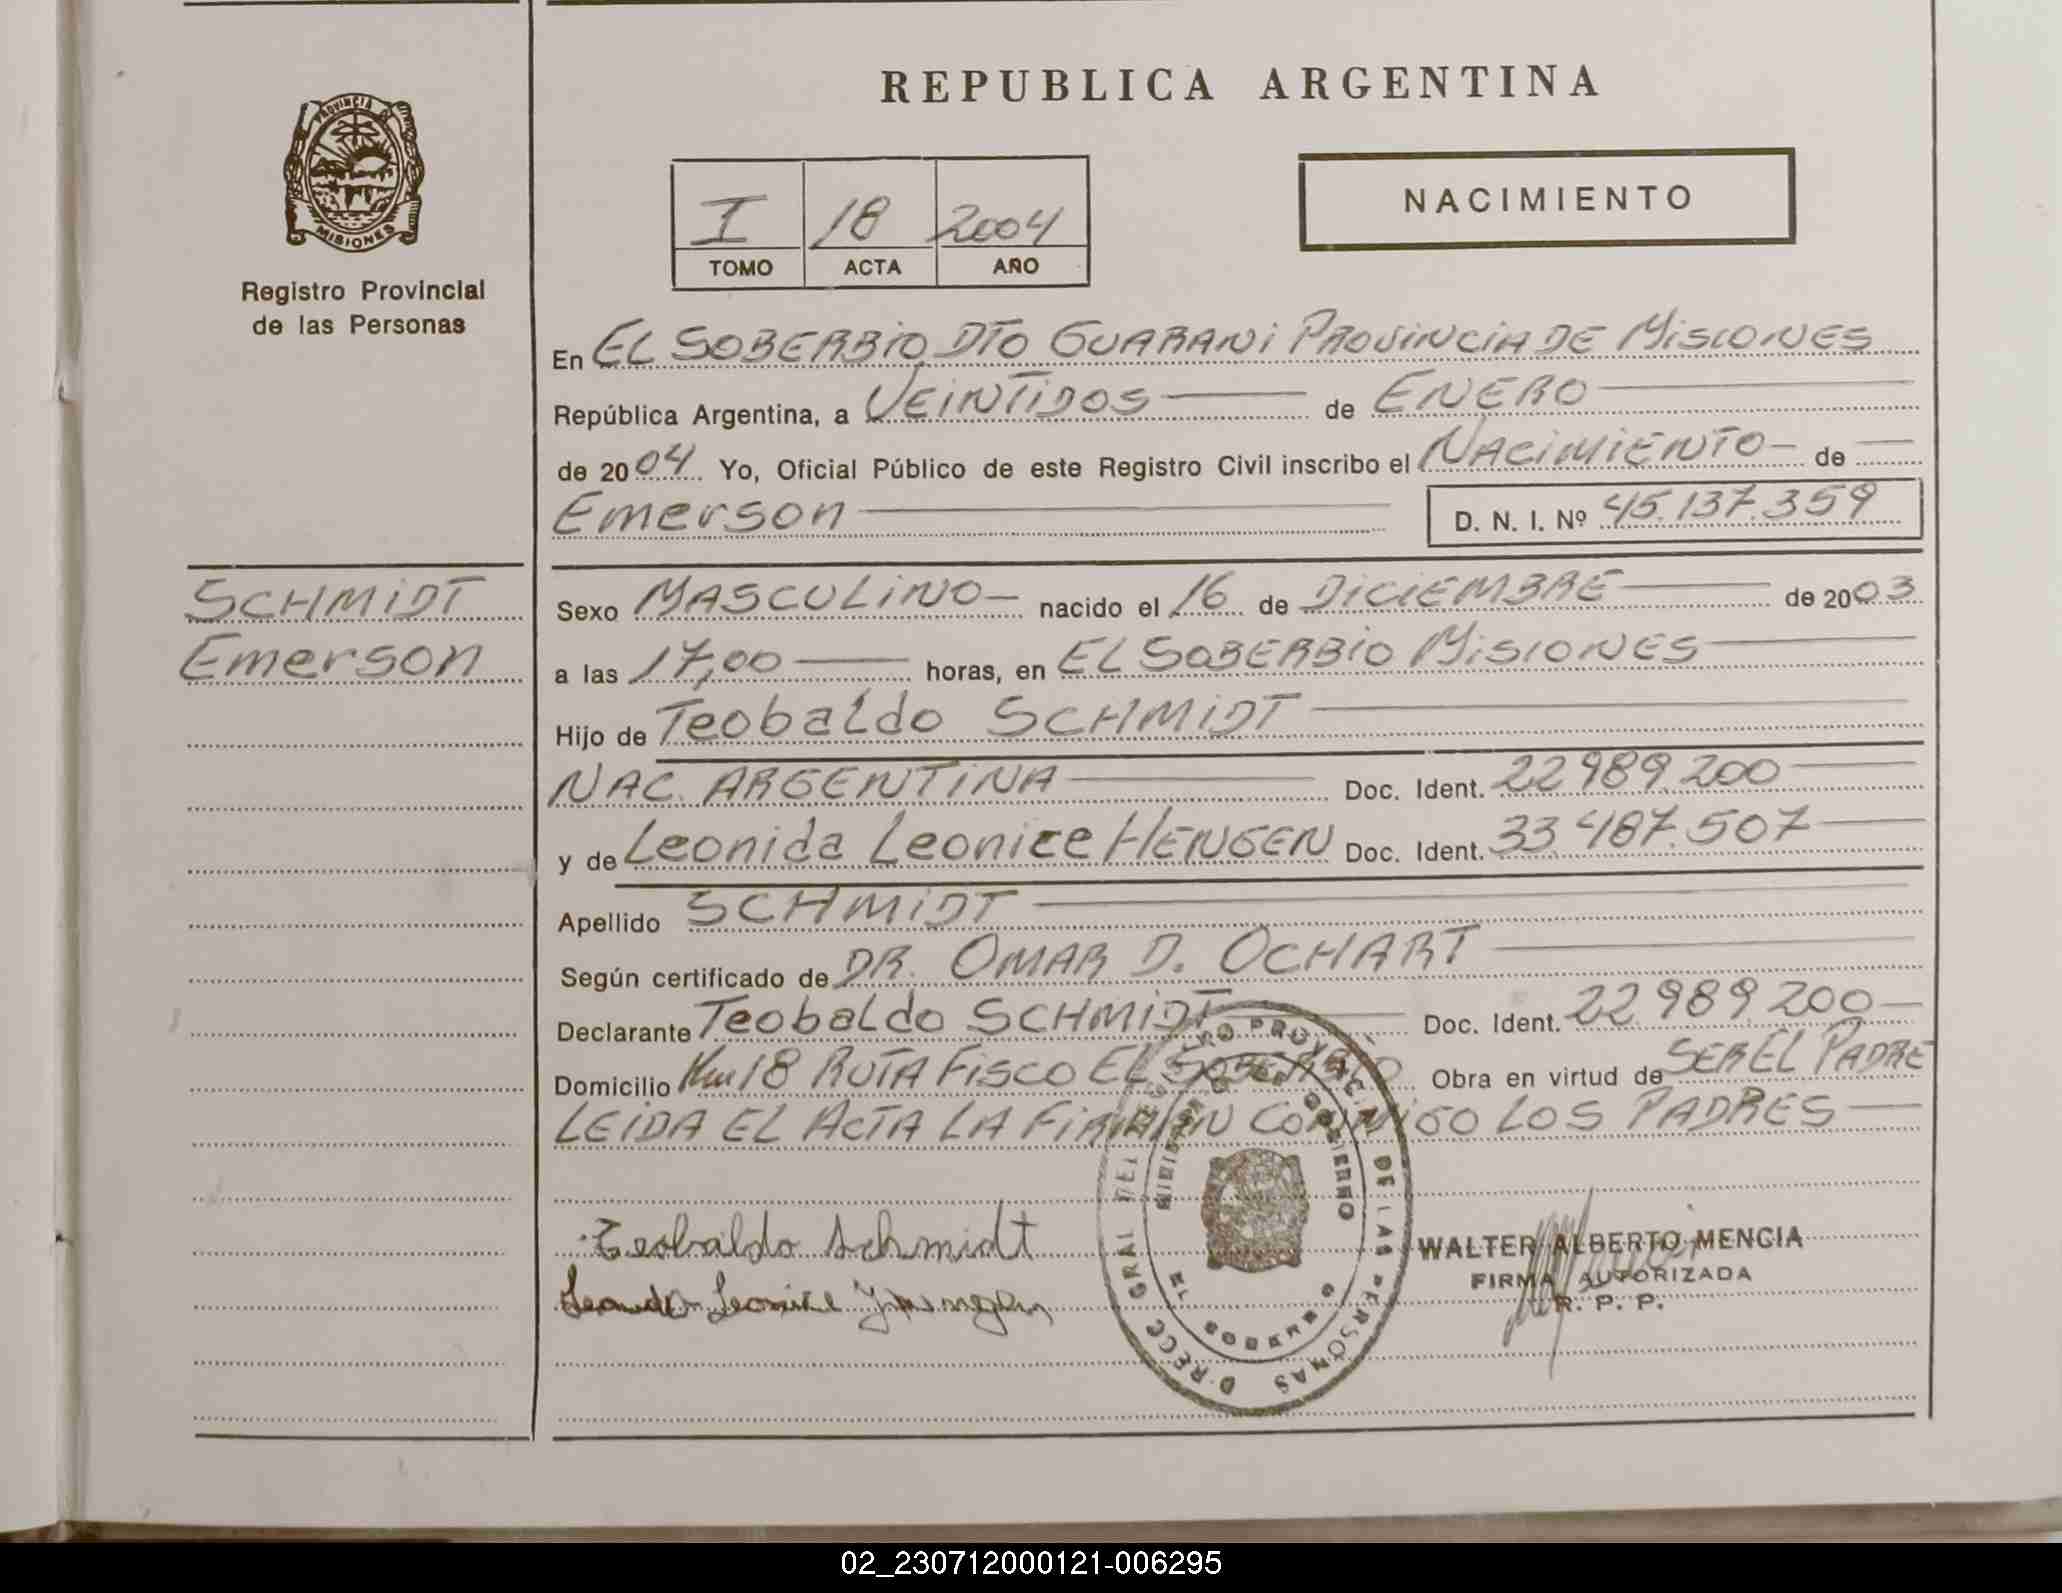 REPUBLICA ARGENTINA
PROVINCIA DE
MISIONES
Registro Provincial
de las Personas
I 18 2004
TOMO ACTA AÑO
NACIMIENTO
En EL SOBERBIO DTO GUARANI PROVINCIA DE MISIONES
República Argentina, a VEINTIDOS de ENERO
de 2004 Yo, Oficial Público de este Registro Civil inscribo el NACIMIENTO de
Emerson D. N. I. Nº 45.137.359
SCHMIDT
Emerson
Sexo MASCULINO nacido el 16 de DICIEMBRE de 2003
a las 17,00 horas, en EL SOBERBIO MISIONES
Hijo de Teobaldo SCHMIDT
NAC. ARGENTINA Doc. Ident. 22 989.200
y de Leonida Leonice HENGEN Doc. Ident. 33 487.507
Apellido SCHMIDT
Según certificado de DR. OMAR D. OCHART
Declarante Teobaldo SCHMIDT Doc. Ident. 22 989 200
Domicilio Km 18 RUTA FISCO EL SOBERBIO Obra en virtud de SER EL PADRE
LEIDA EL ACTA LA FIRMAN CONMIGO LOS PADRES
Teobaldo Schmidt
Leonida Leonice Hengen
DIRECC GRAL DEL REGISTRO PROVINCIAL DE LAS PERSONAS
MINISTERIO DE GOBIERNO
EL SOBERBIO
WALTER ALBERTO MENCIA
FIRMA AUTORIZADA
R. P. P.
02_230712000121-006295